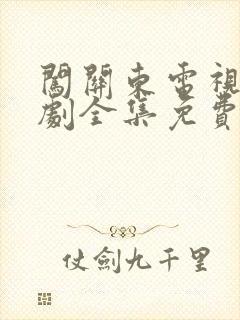 闖關東電視
劇全集免費
仗劍九千里